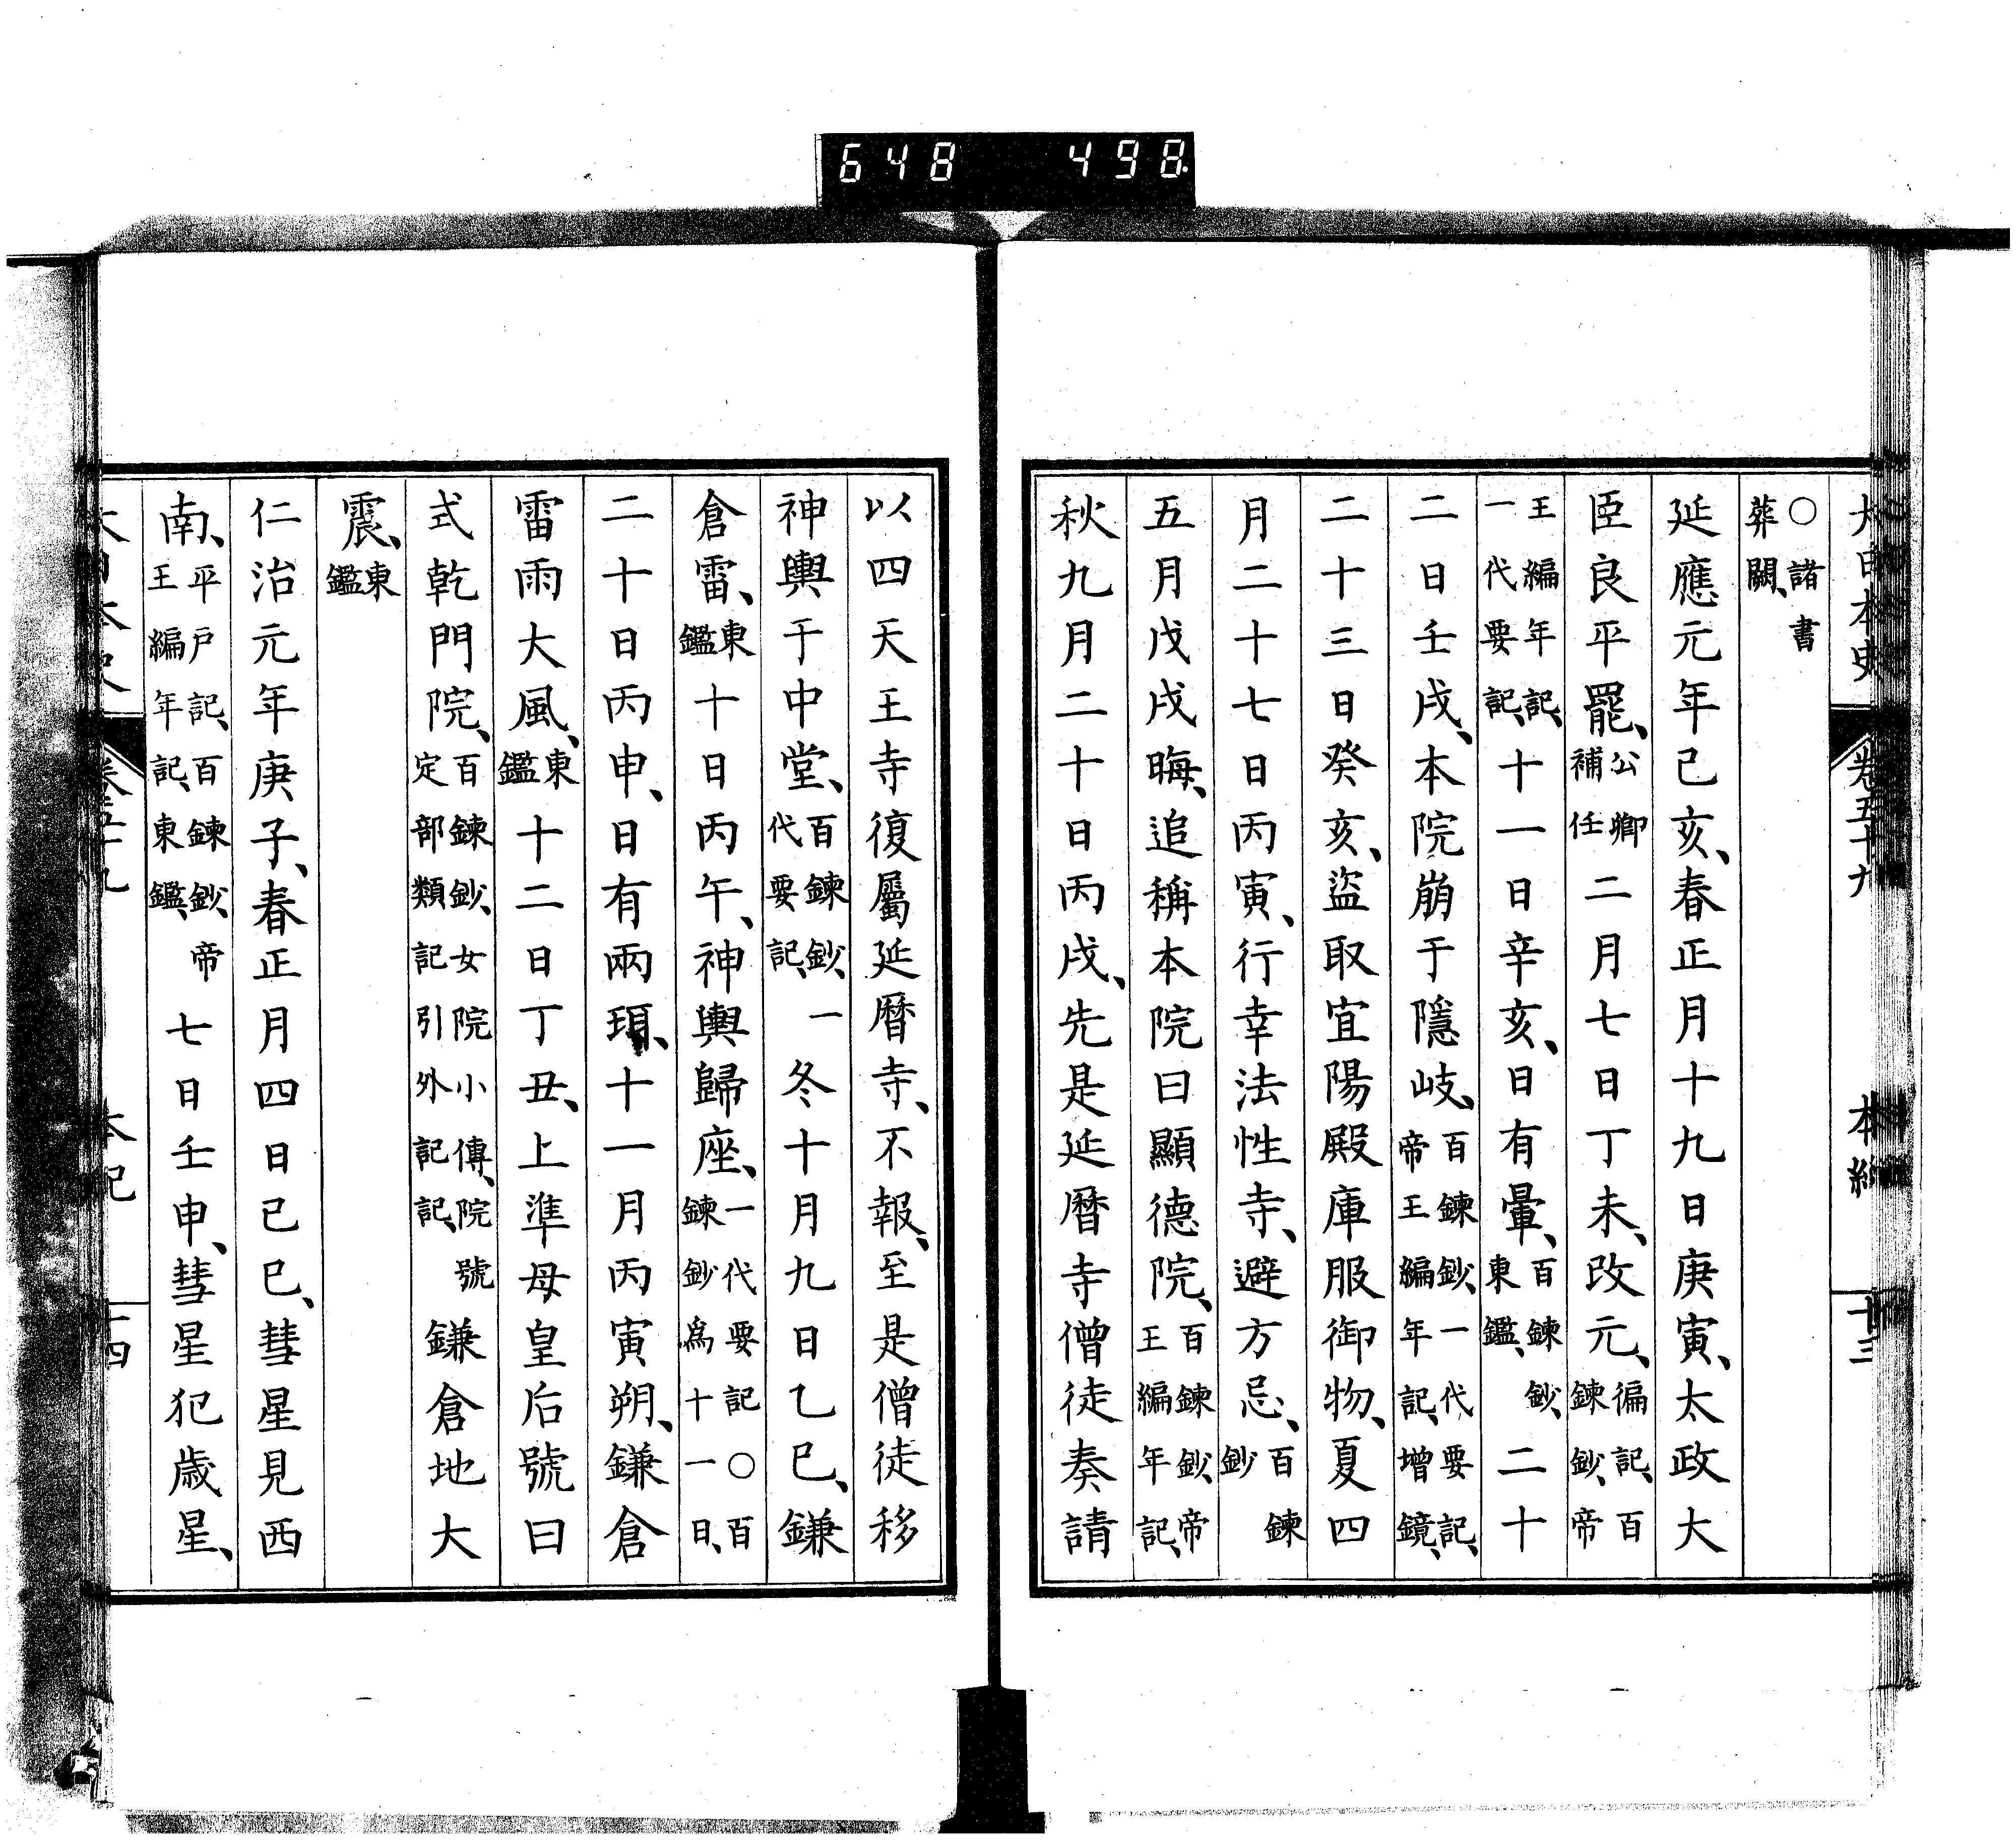 648 498
大日本史 卷五十九 本紀 十三
○諸書葬闕、
延應元年己亥、春正月十九日庚寅、太政大
臣良平罷、公卿補任二月七日丁未、改元、徧記、百鍊鈔、帝
王編年記、一代要記、十一日辛亥、日有暈、百鍊鈔、東鑑、二十
二日壬戌、本院崩于隱岐、百鍊鈔、一代要記、帝王編年記、增鏡、
二十三日癸亥、盜取宜陽殿庫服御物、夏四
月二十七日丙寅、行幸法性寺、避方忌、百鍊鈔
五月戊戌晦、追稱本院曰顯德院、百鍊鈔、帝王編年記、
秋九月二十日丙戌、先是延暦寺僧徒奏請
以四天王寺復屬延暦寺、不報、至是僧徒移
神輿于中堂、百鍊鈔、一代要記、冬十月九日乙巳、鎌
倉雷、東鑑十日丙午、神輿歸座、一代要記○百鍊鈔爲十一日、
二十日丙申、日有兩珥、十一月丙寅朔、鎌倉
雷雨大風、東鑑十二日丁丑、上準母皇后號曰
式乾門院、百鍊鈔、女院小傳、院號定部類記引外記記、鎌倉地大
震、東鑑
仁治元年庚子、春正月四日己巳、彗星見西
南、平戸記、百鍊鈔、帝王編年記、東鑑、七日壬申、彗星犯歳星、
大日本史 卷五十九 本紀 十四